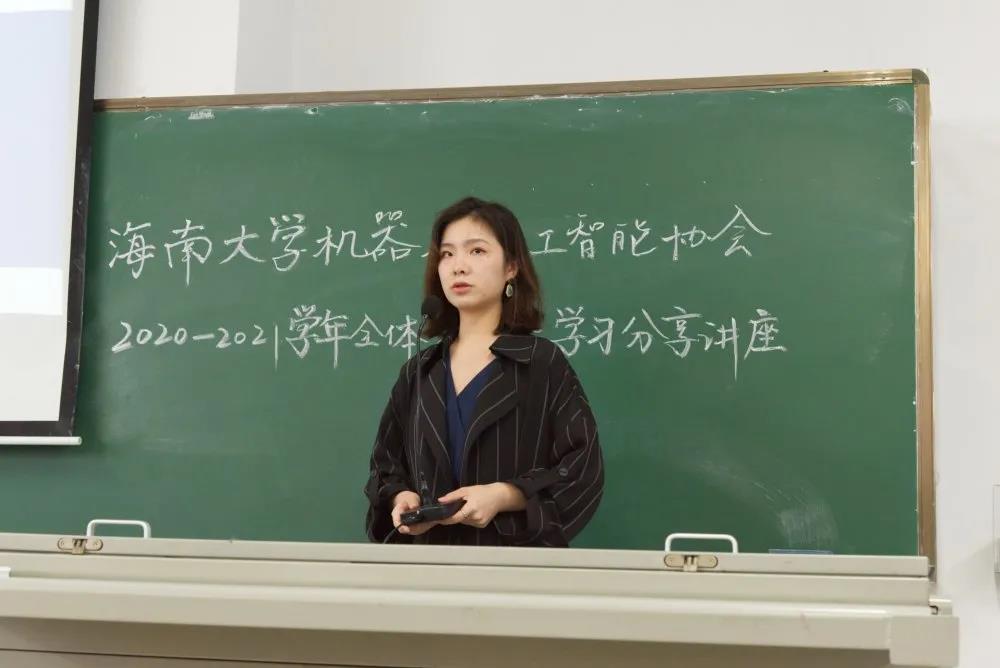 海南大学机器 工智能协会
2020-2021学年全体 学习分享讲座